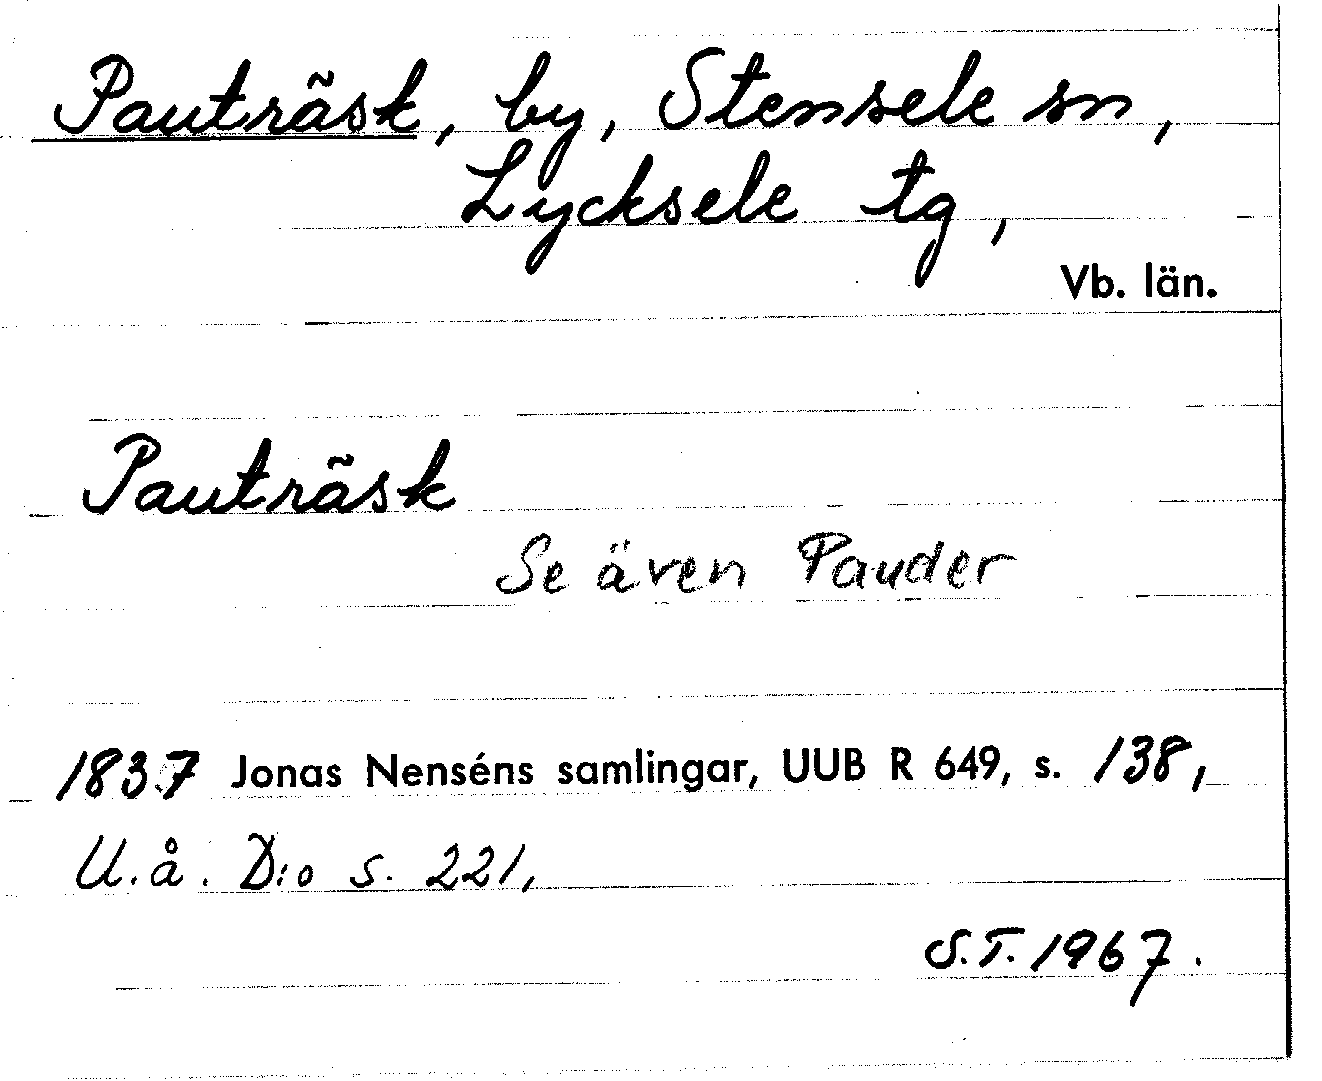 Pauträsk, by, Stensele sn,
Lycksele tg,
Vb. län.
Pauträsk
Se även Pauder
1837 Jonas Nenséns samlingar, UUB R 649, s. 138,
U.å. D:o s. 221,
S.T. 1967.